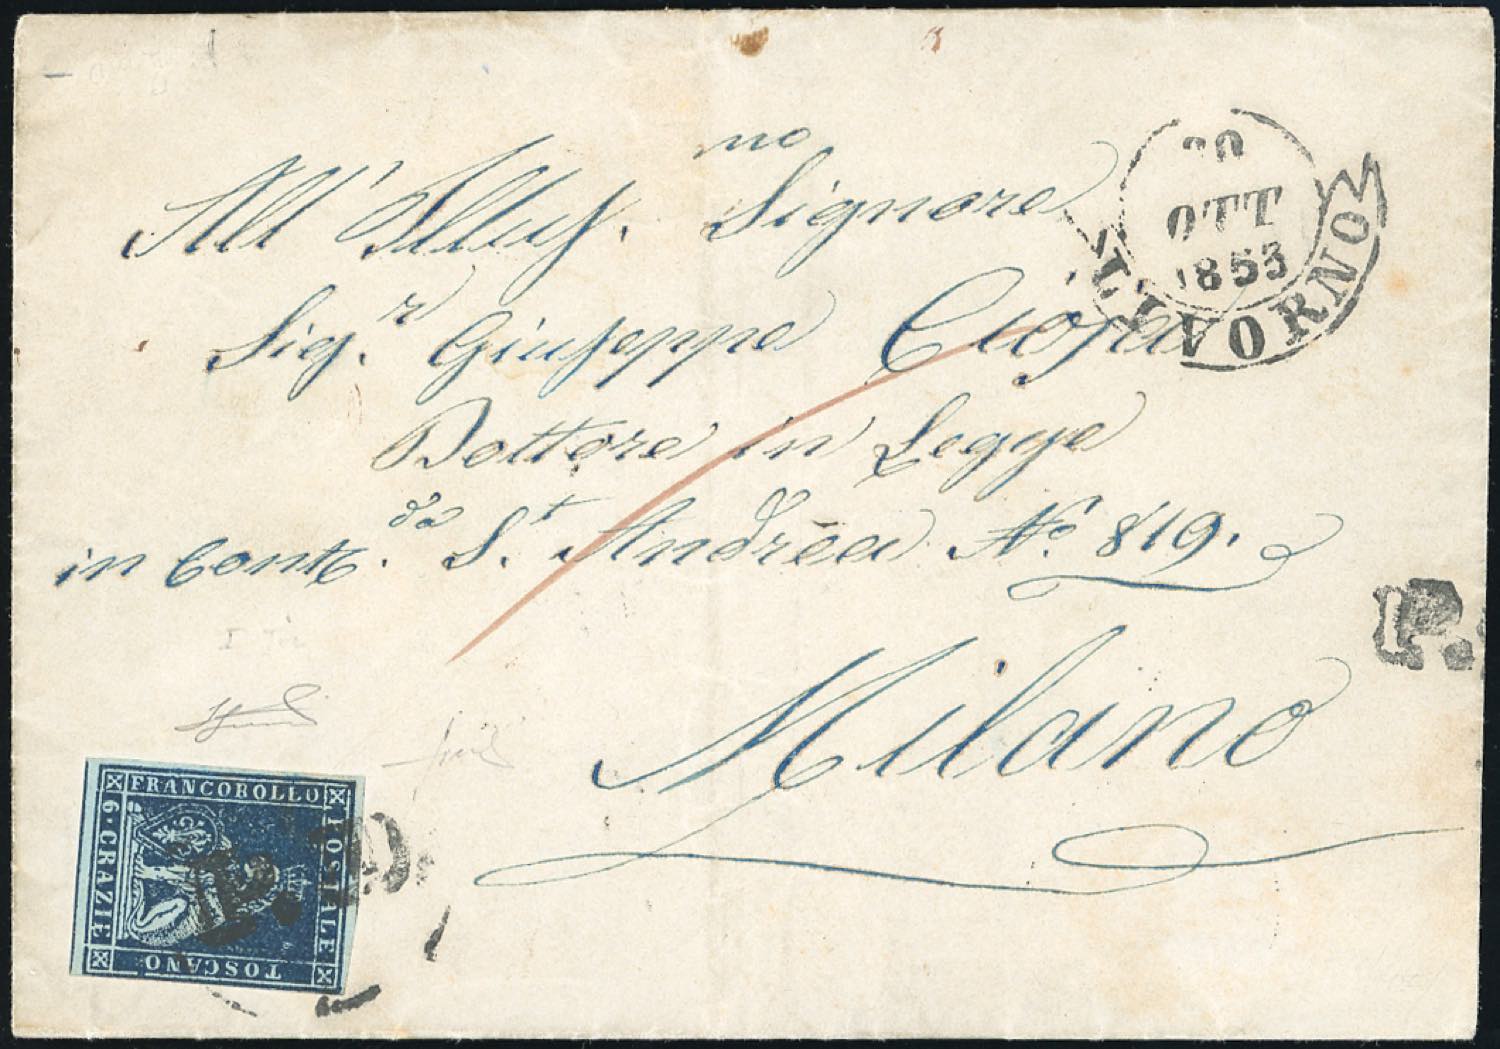 20
OTT
1853
LIVORNO
All' Illus. mo Signore
Sig. r Giuseppe
Dottore in Legge
in Cont. da S. t Andrea No. 819.
Milano
P.
FRANCOBOLLO
POSTALE
TOSCANO
6 · CRAZIE
P. D.